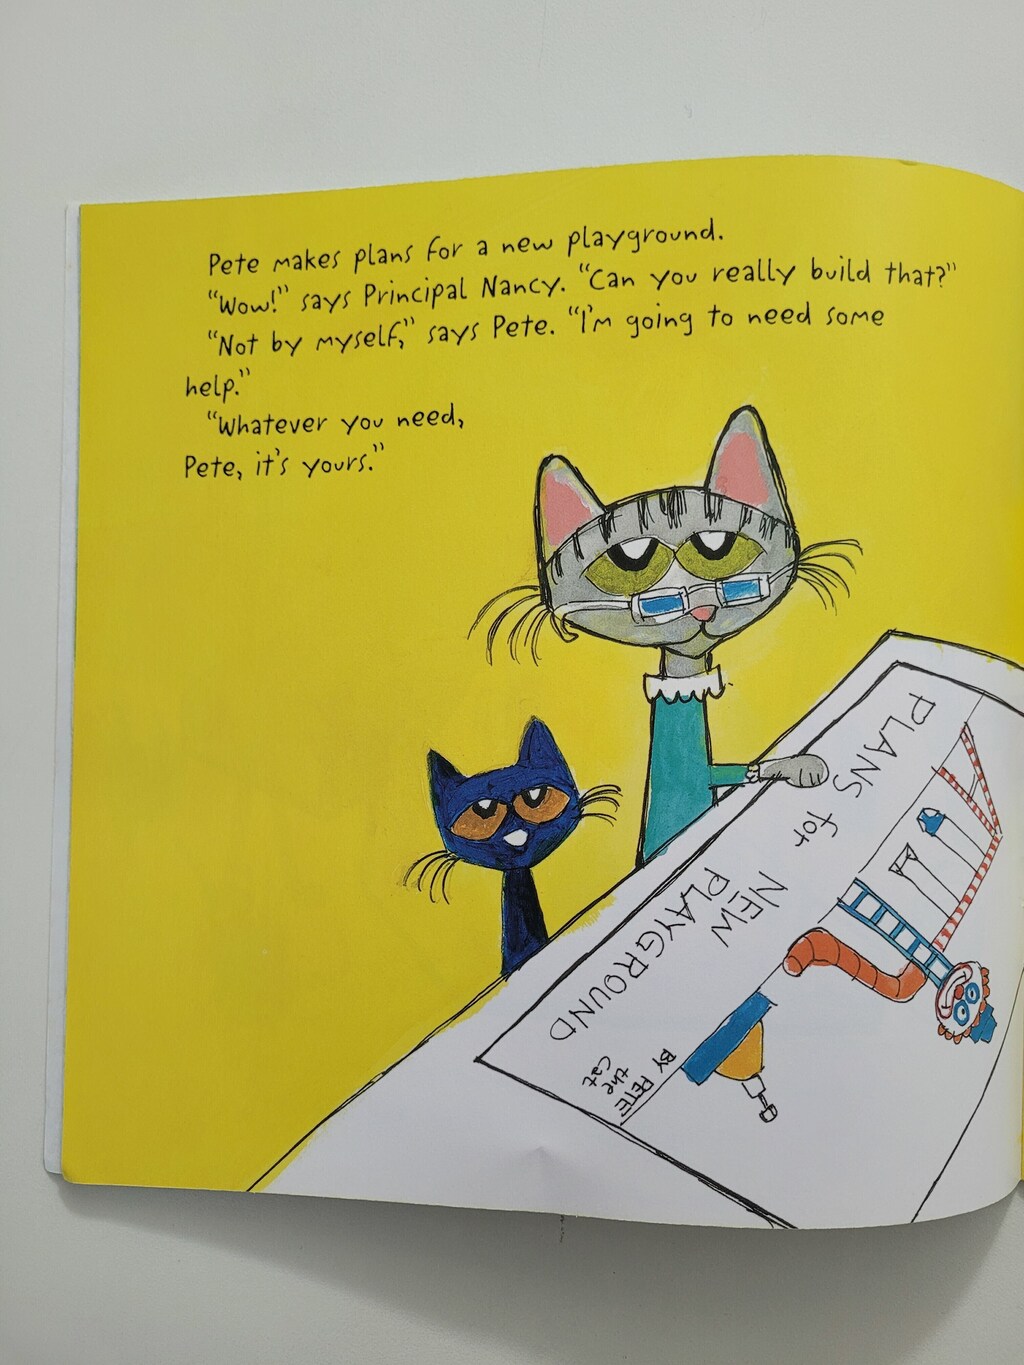 Pete makes plans for a new playground.
"Wow!" says Principal Nancy. "Can you really build that?"
"Not by myself," says Pete. "I'm going to need some
help."
"Whatever you need,
Pete, it's yours."
PLANS for
NEW
PLAYGROUND
BY PETE
the
Cat